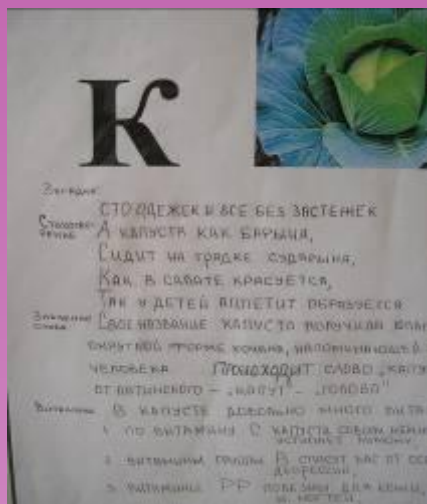 К
Загадка:
СТО ОДЕЖЕК И ВСЕ БЕЗ ЗАСТЕЖЕК
А КАПУСТА КАК БАРЫНЯ,
СИДИТ НА ГРЯДКЕ СУДАРЫНЯ,
КАК В САЛАТЕ КРАСУЕТСЯ,
ТАК У ДЕТЕЙ АППЕТИТ ОБРАЗУЕТСЯ
Значение слова СВОЕ НАЗВАНИЕ КАПУСТА ПОЛУЧИЛА
ФОРМЕ КОЧАНА, НАПОМИНАЮЩЕЙ
ЧЕЛОВЕКА ПРОИСХОДИТ СЛОВО „КАПУ
ОТ ЛАТИНСКОГО – „КАПУТ" – „ГОЛОВА"
Витамины В КАПУСТЕ ДОВОЛЬНО МНОГО ВИТА
1 ПО ВИТАМИНУ С КАПУСТА СОВСЕМ
2 ВИТАМИНЫ ГРУППЫ В СПАСУТ НАС ОТ
ДЕПРЕССИИ,
3 ВИТАМИНЫ РР ПОЛЕЗНЫ ДЛЯ КОЖИ,
И НОГТЕЙ